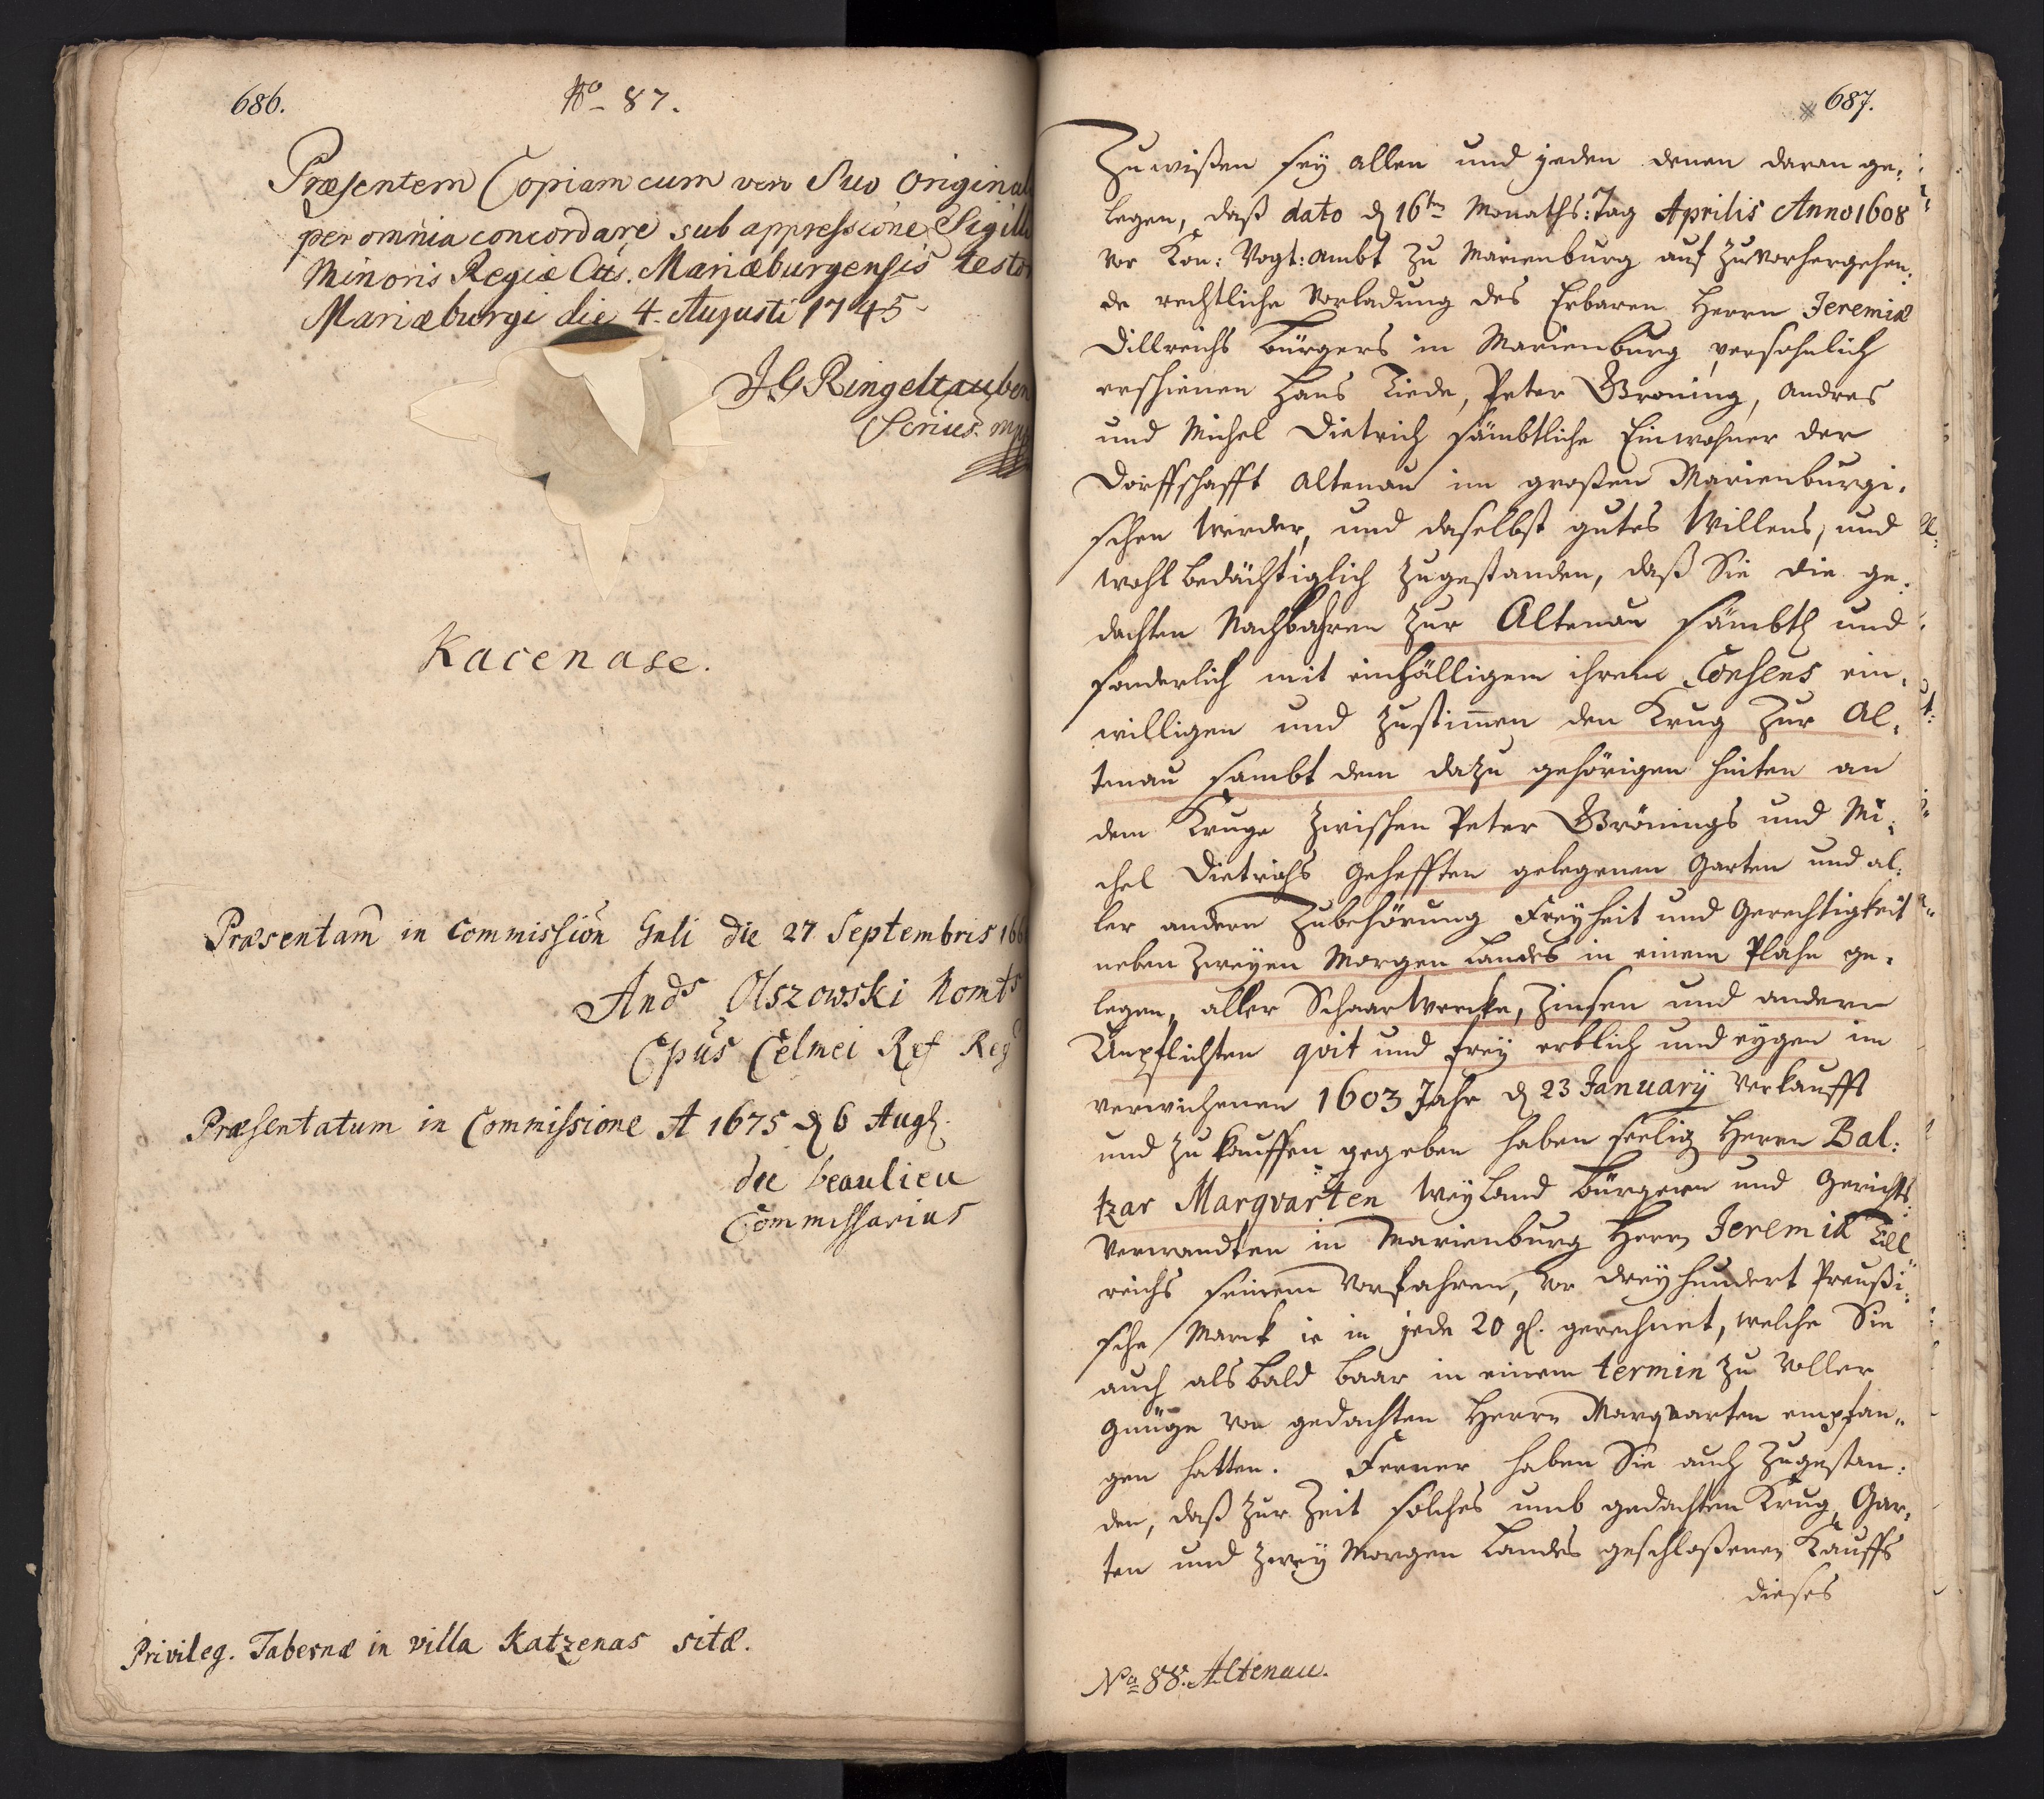 686.
No 87.
Præsentem Copiam cum vero Suo Original
per omnia concordare sub appressione Sigilli
Minoris Regiæ Cttis. Mariæburgensis testor
Mariæburgi die 4. Augusti 1745
J G Ringeltauben
Scrius. mpp
Kacenase.
Præsentam in Commission Gnli die 27 Septembris 166
Ands Olszowski Nomts
Epus Celmei Ref Reg
Præsentatum in Commissione A 1675 d 6 Augs.
de beaulieu
Commissarius
Privileg. Tabernæ in villa Katzenas sitæ.
687.
Zu wißen sey allen und jeden denen daran ge-
legen, daß dato d 16ten Monaths: Tag Aprilis Anno 1608
vor Kön: Vogt: ambt zu Marienburg auf zuvorhergehen:
de rechtliche Vorladung des Erbaren Herrn Jeremiæ
Dillreichs Bürgers in Marienburg persohnlich
erschienen Hans Tiede, Peter Gröning, Andres
und Michel Dietrich sämbtliche Einwohner der
Dorffschafft Altenau im großen Marienburgi-
schen Werder, und daselbst gutes Willens, und
wohl bedächtiglich zugestanden, daß Sie die ge-
dachten Nachbahren zur Altenau sämbtl und
sonderlich mit einhälligem ihrem Consens ein-
willigen und zustimen den Krug zur Al-
tenau sambt dem dazu gehörigen hinten an
dem Kruge zwischen Peter Grönings und Mi-
chel Dietrichs Gehefften gelegenen Garten und al-
ler andern Zubehörung Freyheit und Gerechtigkeit
neben zweyen Morgen Landes in einem Plahn ge-
legen, aller Schaarwercke, Zinsen und andern
Unpflichten qvit und frey erblich und eygen im
verwichenen 1603 Jahr d 23 January Verkaufft
und zu kauffen gegeben haben seelig Herrn Bal:
tzar Marqvarten weyland Bürgern und Gerichts
Verwandten in Marienburg Herrn Jeremiæ Till
reichs seinem Vorfahren, vor drey hundert Preußi-
sche Marck ie in jede 20 gl. gerechnet, welche Sie
auch alsbald baar in einem termin zu voller
gnüge von gedachten Herrn Marqvarten empfan-
gen hatten. Ferner haben Sie auch zugestan:
den, daß zur Zeit solches umb gedachten Krug, Gar-
ten und zwey Morgen Landes geschloßenen Kauffs
dieses
No 88. Altenau.